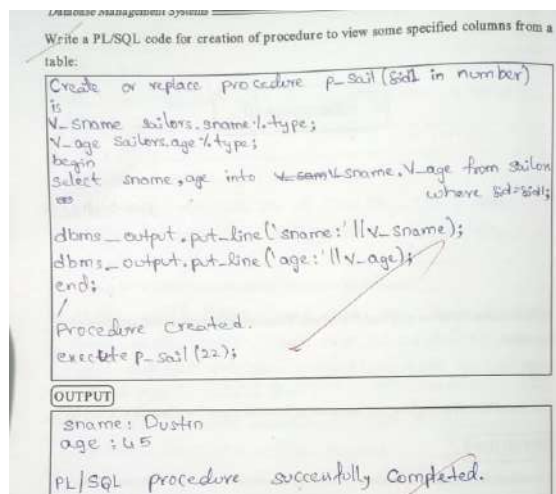 Database Management Systems
Write a PL/SQL code for creation of procedure to view some specified columns from a
table:
Create or replace procedure p_sail (sid1 in number)
is
V_sname sailors.sname%type;
V_age sailors.age%type;
begin
select sname, age into V_sname, V_age from sailors
where sid=sid1;
dbms_output.put_line('sname:'||v_sname);
dbms_output.put_line('age:'||v_age);
end;
/
Procedure Created.
execute p_sail(22);
OUTPUT
sname: Dustin
age : 45
PL/SQL procedure succenfully Completed.